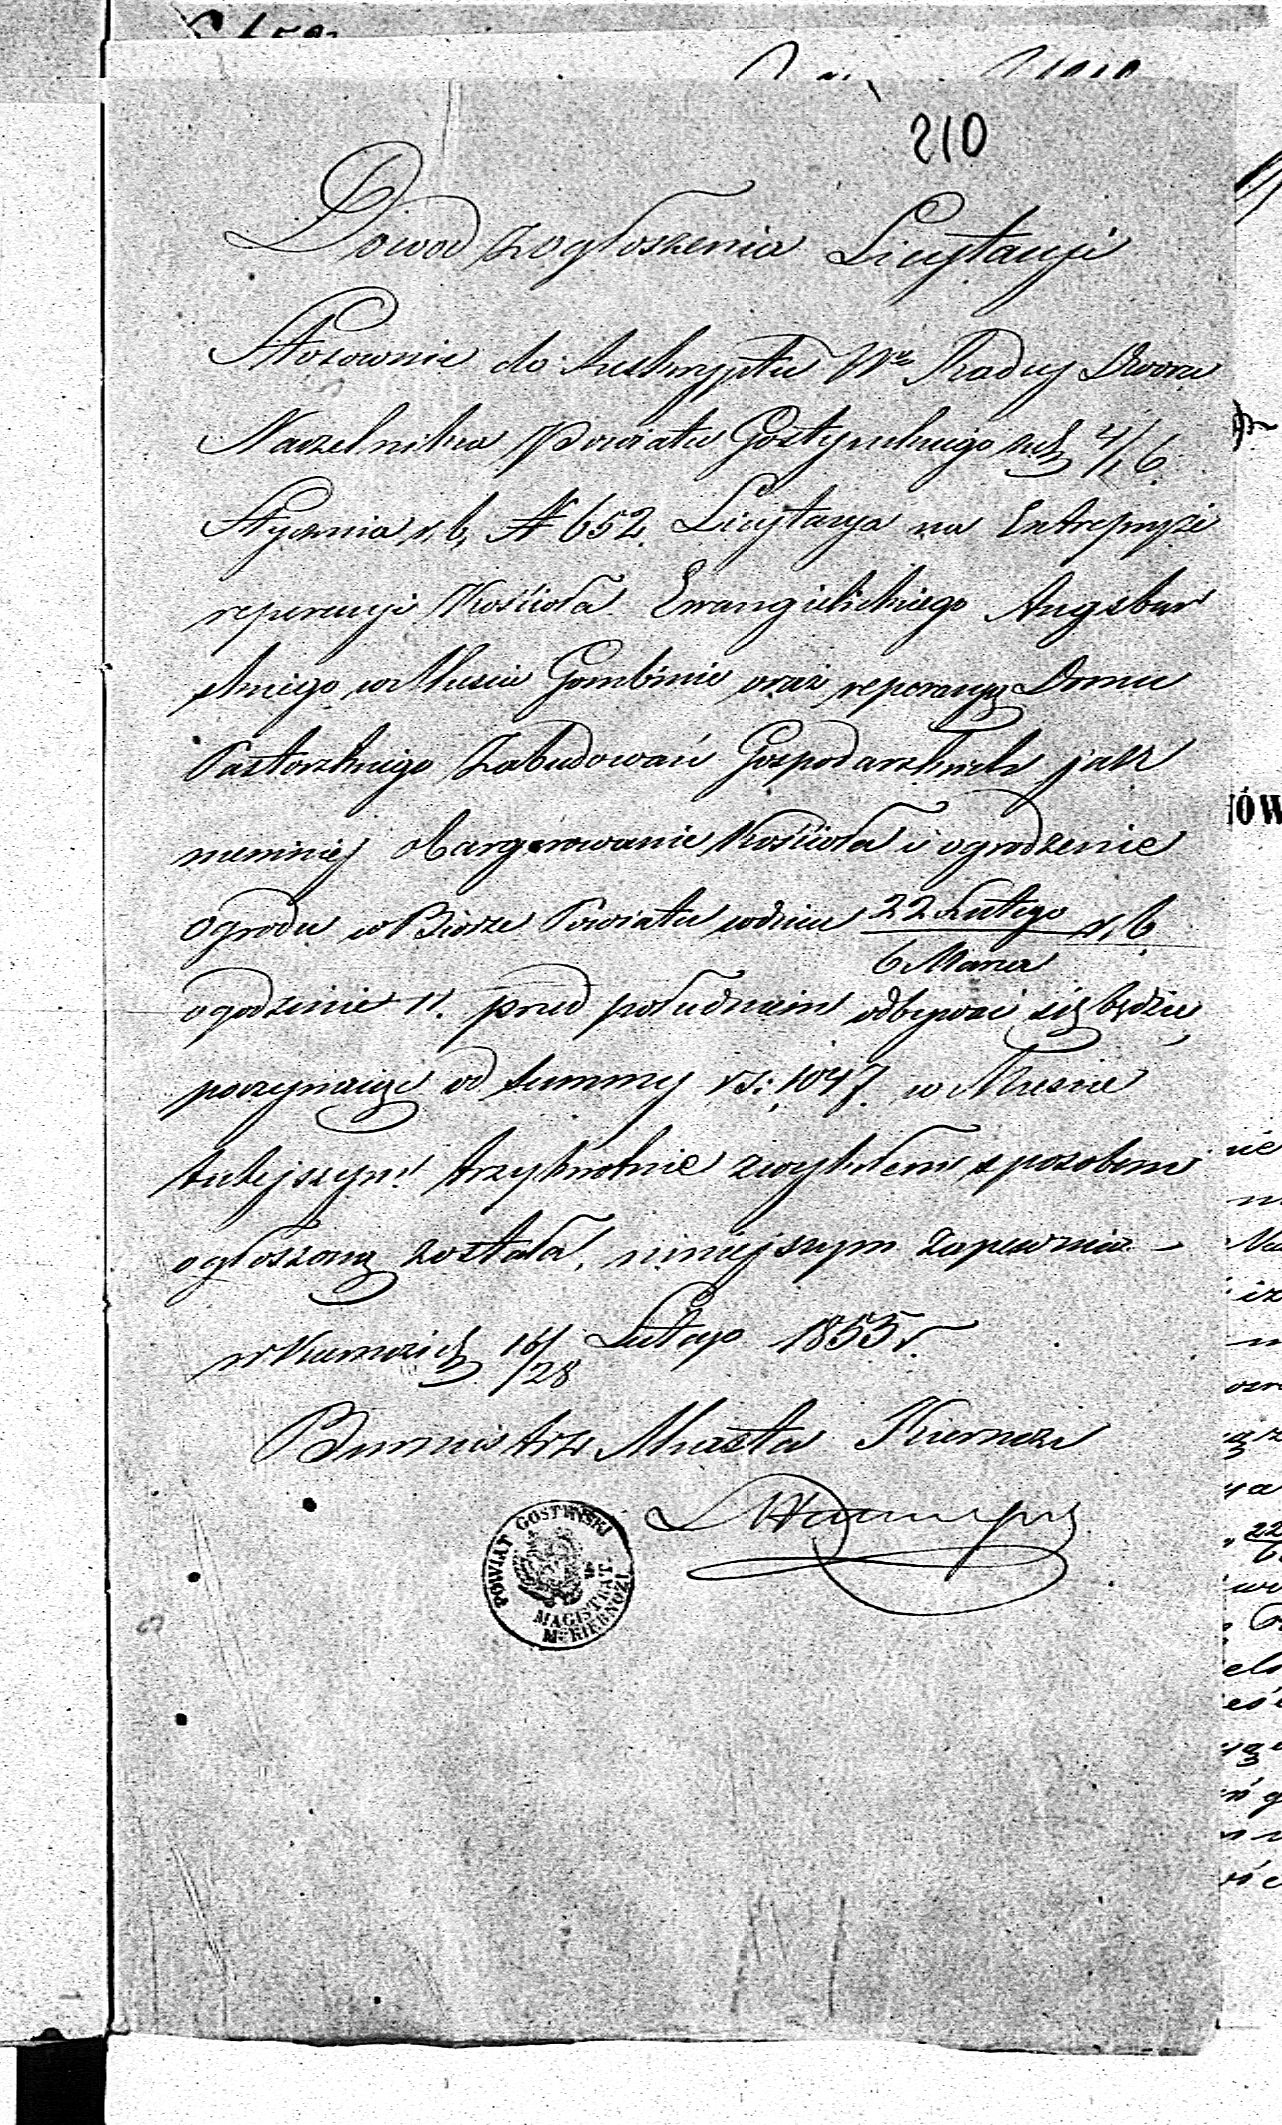 210
Dowod zogłoszenia Licytacyi
Stosownie do Reskryptu Wo Radcy Dworu
Naczelnika Powiatu Gostynskiego z d. 4/16
Stycznia r. b. N 652. Licytacya na Entrepryze
reperacyi Kościoła Ewangielickiego Augsbur
skiego w Miescie Gombinie oraz reperacyą Domu
Pastorskiego Zabudowań Gospodarskich jak
niemniej obargowanie Kościoła i ogrodzenie
Ogrodu w Biorze Powiatu w dniu 22 Lutego r. b.
6 Marca
o godzinie 11. przed południem odbywać się będzie
poczynając od Summy rs: 1047. w Miescie
tutejszym trzykrotnie zwykłem sposobem
ogłoszoną została, niniejszym zapewnia
w Kiernozi d. 16/28 Lutego 1853 r.
Burmistrz Miasta Kiernozi
POWIAT GOSTYŃSKI
MAGISTRAT.
Mta KIERNOZI